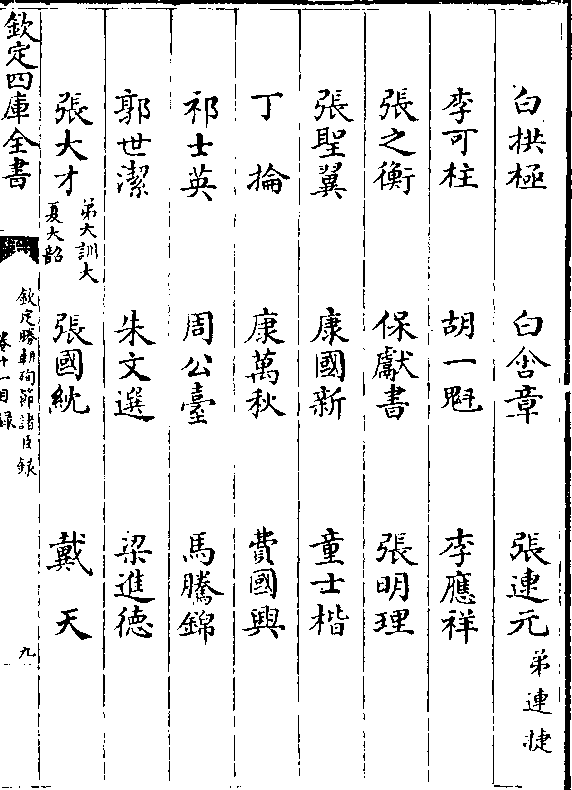 白拱極 白含章 張連元 弟連捷
李可柱 胡一魁 李應祥
張之衡 保獻書 張明理
張聖翼 康國新 童士楷
丁掄 康萬秋 費國興
祁士英 周公臺 馬騰錦
郭世潔 朱文選 梁進德
張大才 弟大訓大夏大韶 張國紞 戴天
欽定四庫全書 欽定勝朝殉節諸臣錄 卷十一目錄 九